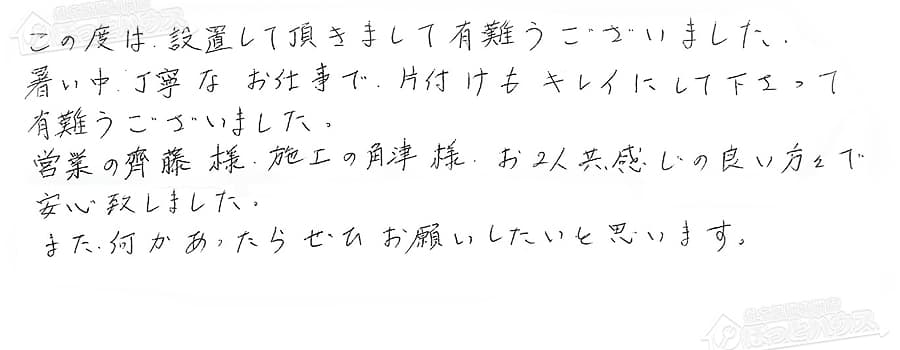 この度は、設置して頂きまして有難うございました。
暑い中、丁寧なお仕事で、片付けもキレイにして下さって
有難うございました。
営業の齊藤様、施工の角津様、お2人共感じの良い方々で
安心致しました。
また、何かあったらぜひお願いしたいと思います。